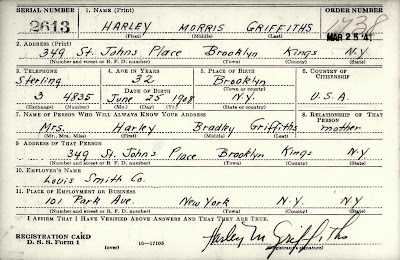 SERIAL NUMBER 1. NAME (Print) ORDER NUMBER
2613 HARLEY MORRIS GRIFFITHS 1738
(First) (Middle) (Last) MAR 25 '41
2. ADDRESS (Print)
349 St. Johns Place Brooklyn Kings N.Y
(Number and street or R. F. D. number) (Town) (County) (State)
3. TELEPHONE 4. AGE IN YEARS 5. PLACE OF BIRTH 6. COUNTRY OF
Sterling 32 Brooklyn CITIZENSHIP
DATE OF BIRTH (Town or county)
3 4835 June 25 1908 N.Y. U.S.A.
(Exchange) (Number) (Mo.) (Day) (Yr.) (State or country)
7. NAME OF PERSON WHO WILL ALWAYS KNOW YOUR ADDRESS 8. RELATIONSHIP OF THAT
Mrs. Harley Bradley Griffiths PERSON
mother
(Mr., Mrs., Miss) (First) (Middle) (Last)
9. ADDRESS OF THAT PERSON
349 St. Johns Place Brooklyn Kings N.Y
(Number and street or R. F. D. number) (Town) (County) (State)
10. EMPLOYER'S NAME
Louis Smith Co.
11. PLACE OF EMPLOYMENT OR BUSINESS
101 Park Ave. New York N.Y. N.Y
(Number and street or R. F. D. number) (Town) (County) (State)
I AFFIRM THAT I HAVE VERIFIED ABOVE ANSWERS AND THAT THEY ARE TRUE.
REGISTRATION CARD
D. S. S. Form 1 (over) 16—17105 Harley M Griffiths
(Registrant's signature)